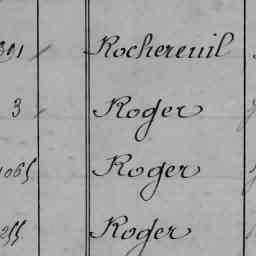 301 Rochereuil
3 Roger
1065 Roger
255 Roger